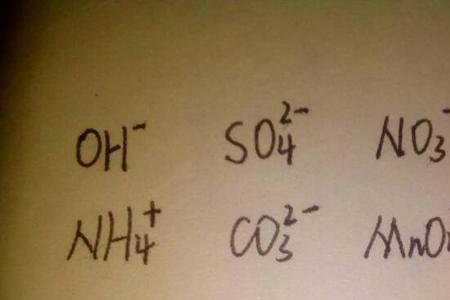 OH⁻ SO₄²⁻ NO₃⁻
NH₄⁺ CO₃²⁻